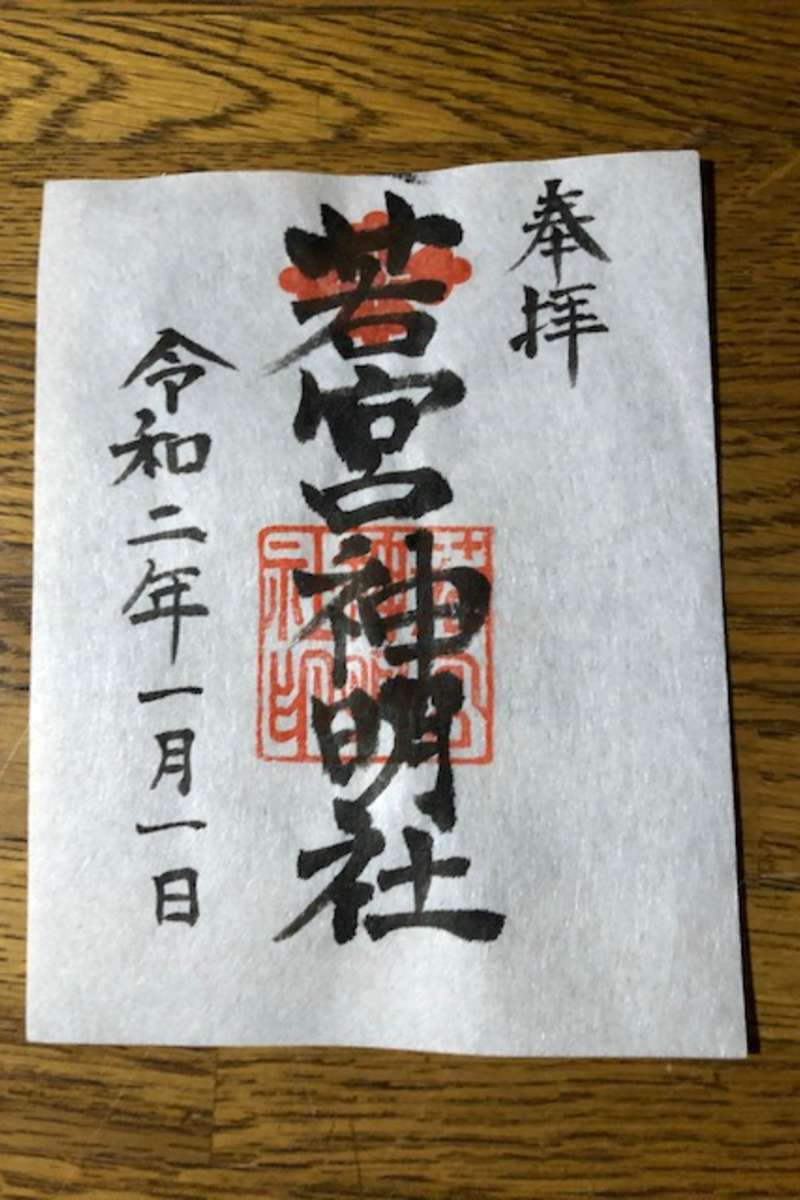 奉拝
若宮神明社
令和二年一月一日